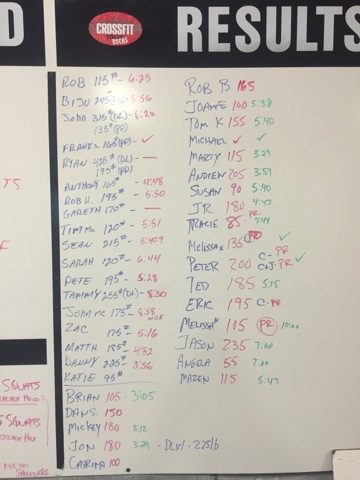 D
CROSSFIT
ROCKS
RESULTS
ROB 115# - 6:25
BIJU 245#(DL) - 5:56
JOHN 315#(DL) - 6:20
135#(PP)
FRANK 165#(PP) - ✓
RYAN 435#(DL) -
195#(PP)
ANTHONY 165# - 4:48
ROB H. 195# - 5:50
GARETH 170# -
TIM MC 120# - 5:51
SEAN 215# - 5:40
SARAH 120# - 6:44
PETE 195# - 5:28
TAMMY 255#(DL) - 8:30
JOHN MC 175# - 8:58
ZAC 175# - 5:16
MATTH 185# - 4:52
DANNY 225# - 3:56
KATIE 95#
BRIAN 105 - 3:05
DAN S. 150
MICKEY 180 8:12
JON 180 3:29 - DLx1 - 275lb
CATRINA 100
ROB B. 165
JOANNE 100 5:38
TOM K 155 5:40
MICHAEL ✓ ✓
MARTY 115 3:29
ANDREW 205 3:59
SUSAN 90 5:40
JR 180 4:43
TRACIE 85 PR 7:44
MELISSA 135 PR ✓
PETER 200 C - PR ✓
C&J - PR
TED 185 5:15
ERIC 195 C - PR
MELISSA 105 PR 10:00
JASON 235 7:08
ANGELA 55 7:20
MAZEN 115 5:43
TS
SQUATS
SQUATS